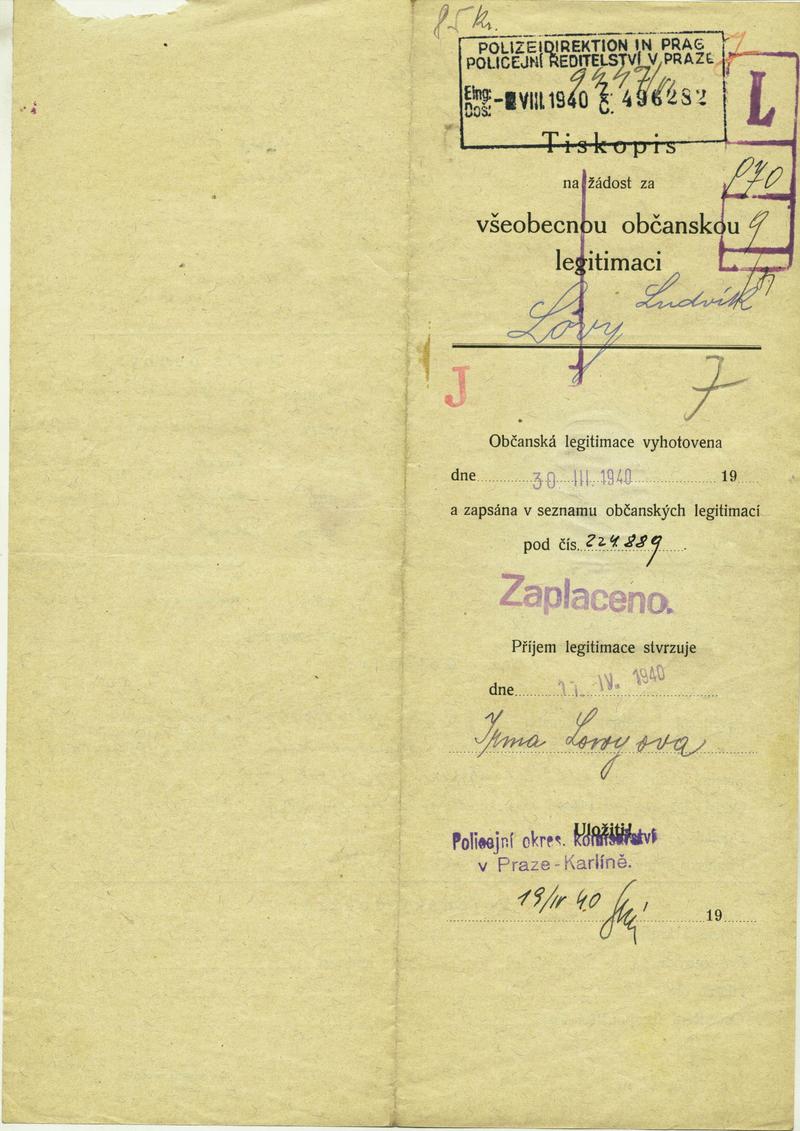 85 Kr.
POLIZEIDIREKTION IN PRAG
POLICEJNÍ ŘEDITELSTVÍ V PRAZE
Eing:
Doš:
VIII. 1940 Č. 496282
L
Tiskopis
na žádost za
070
všeobecnou občanskou
9
legitimaci
Ludvík
Lövy
J
7
Občanská legitimace vyhotovena
dne 30 III. 1940 19
a zapsána v seznamu občanských legitimací
pod čís. 224.889
Zaplaceno.
Příjem legitimace stvrzuje
dne IV. 1940
Irma Lowyova
Uložiti!
Policejní okres. komisařství
v Praze-Karlíně.
19/IV 40
19